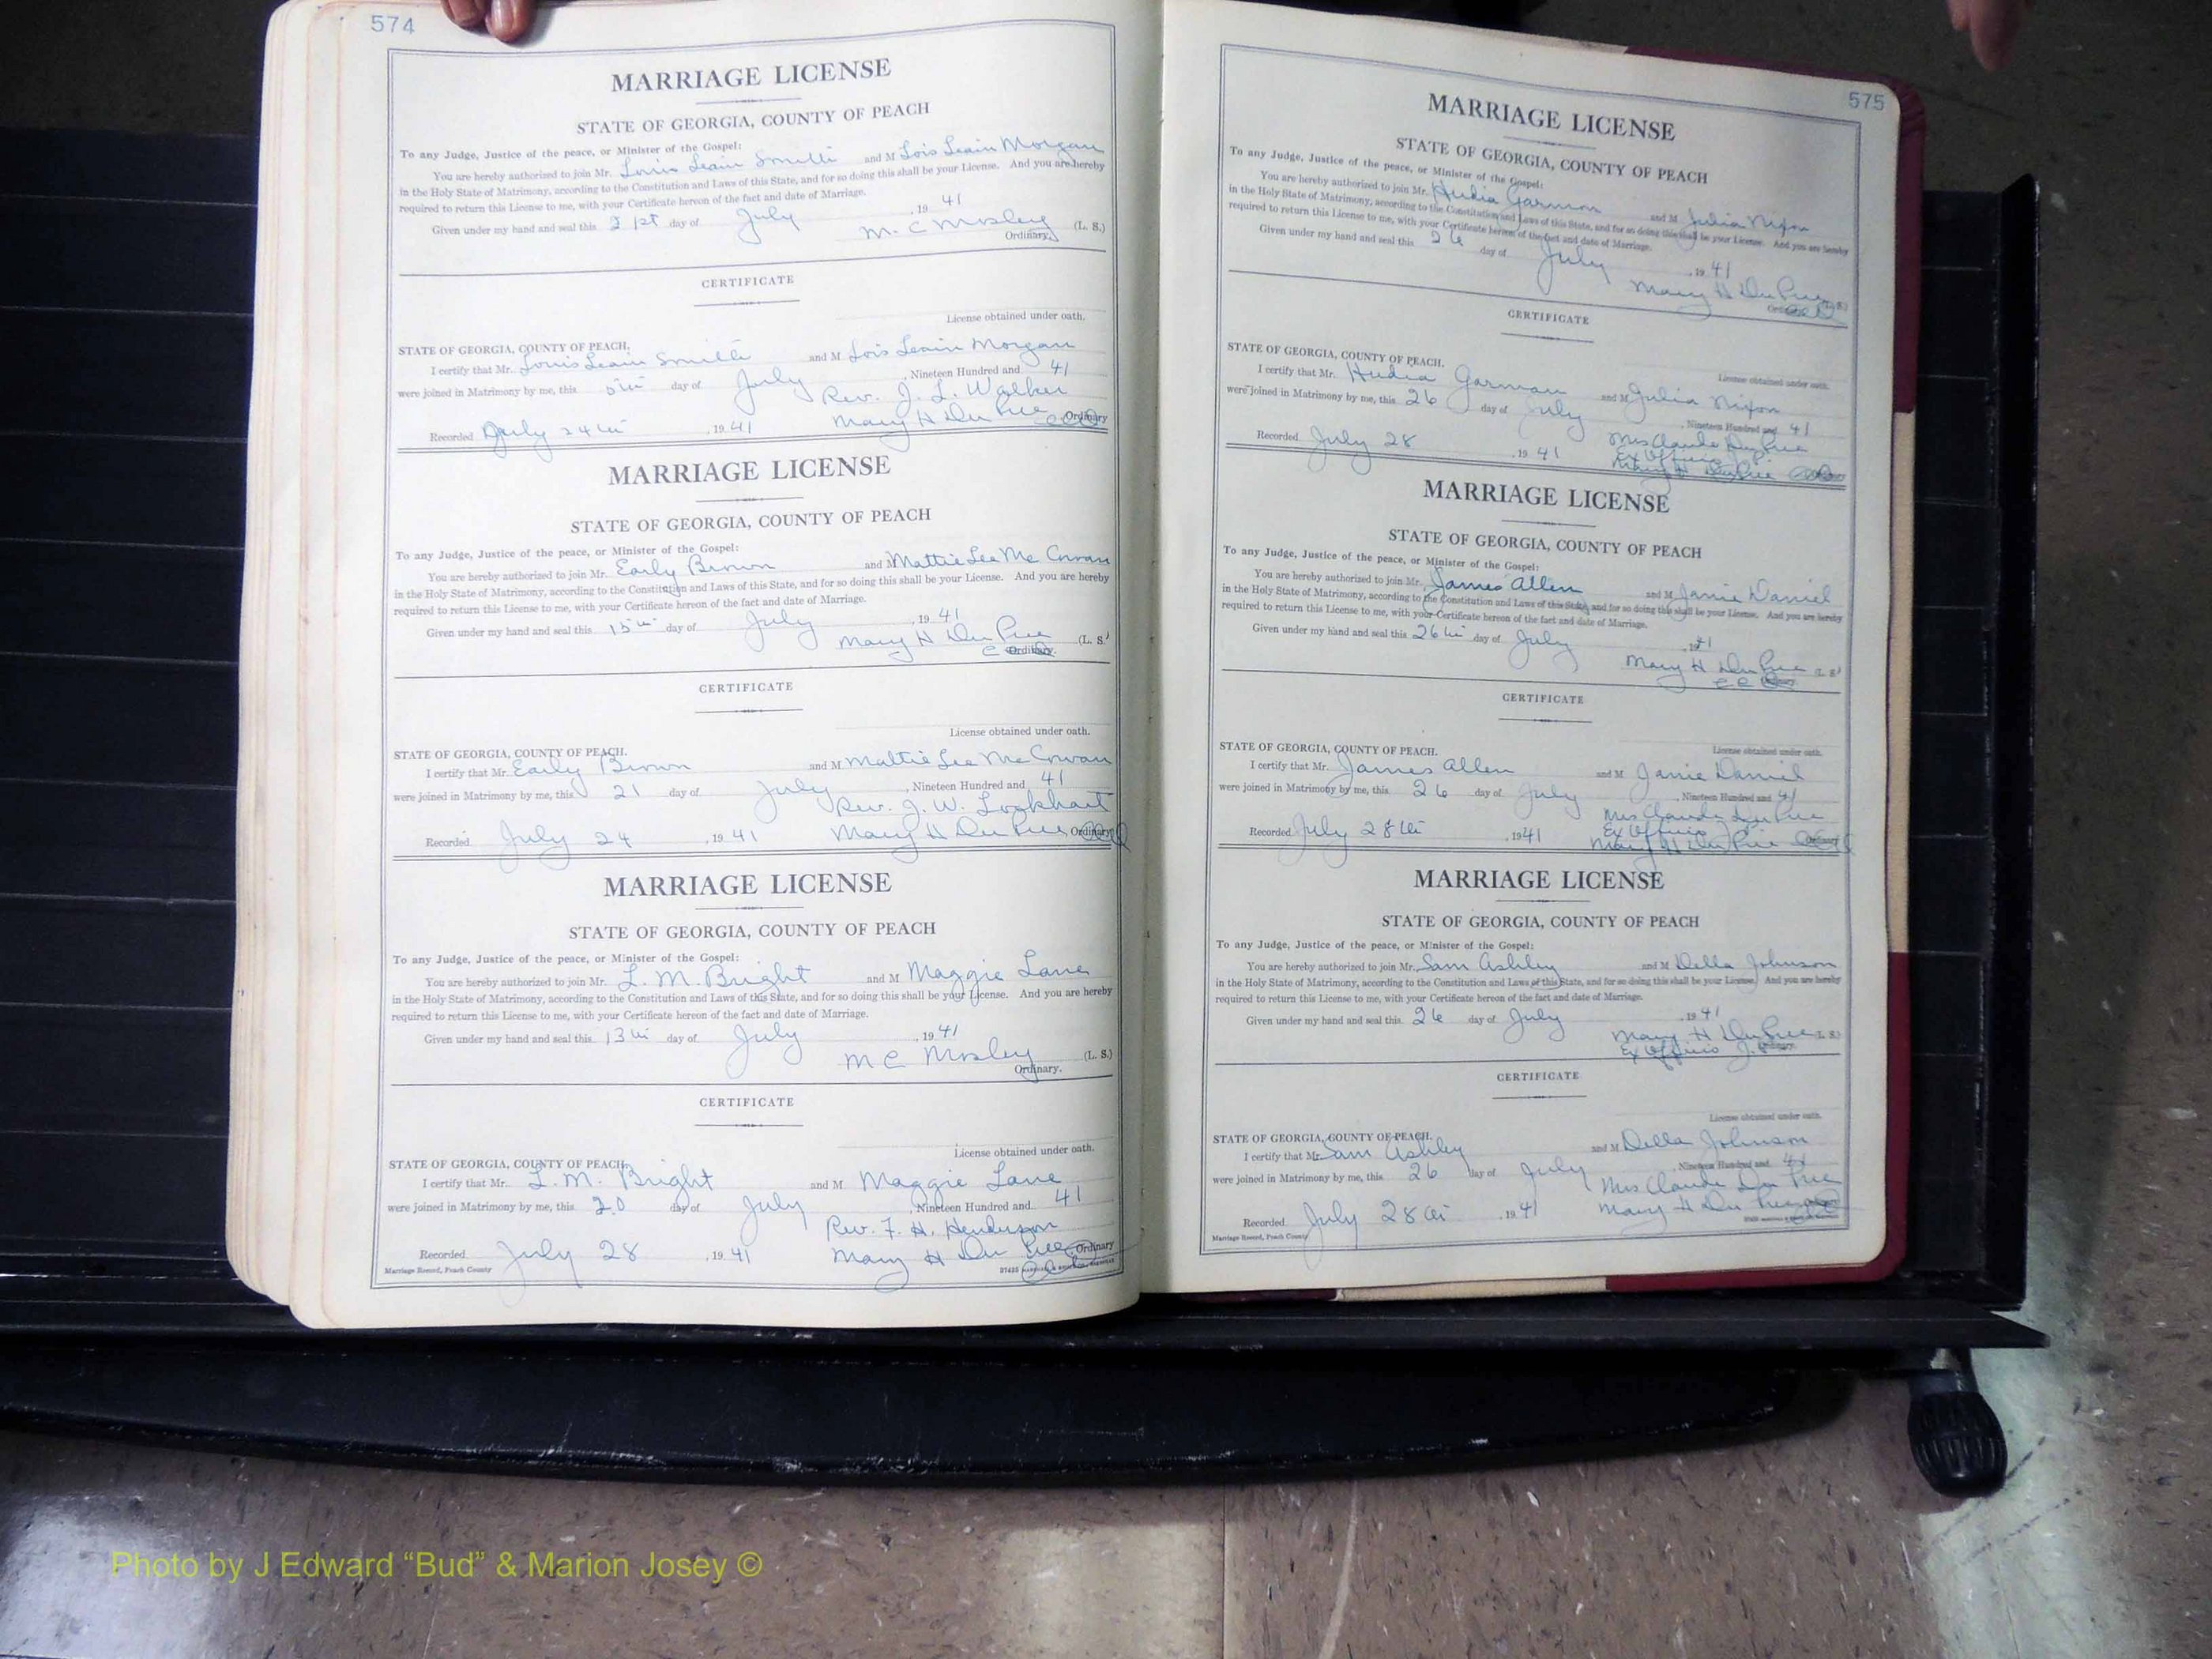 574
MARRIAGE LICENSE
STATE OF GEORGIA, COUNTY OF PEACH
To any Judge, Justice of the peace, or Minister of the Gospel:
You are hereby authorized to join Mr. Louis Leain Smith and M Lois Leain Morgan
in the Holy State of Matrimony, according to the Constitution and Laws of this State, and for so doing this shall be your License. And you are hereby
required to return this License to me, with your Certificate hereon of the fact and date of Marriage.
Given under my hand and seal this 21st day of July, 1941
M. C Mosley (L. S.)
Ordinary.
CERTIFICATE
License obtained under oath.
STATE OF GEORGIA, COUNTY OF PEACH.
I certify that Mr. Louis Leain Smith and M Lois Leain Morgan
were joined in Matrimony by me, this 5th day of July, Nineteen Hundred and 41
Rev. J. L. Walker
Recorded July 24th, 1941 Mary H Du Pree Ordinary
MARRIAGE LICENSE
STATE OF GEORGIA, COUNTY OF PEACH
To any Judge, Justice of the peace, or Minister of the Gospel:
You are hereby authorized to join Mr. Early Brown and M Mattie Lee Mc Cowan
in the Holy State of Matrimony, according to the Constitution and Laws of this State, and for so doing this shall be your License. And you are hereby
required to return this License to me, with your Certificate hereon of the fact and date of Marriage.
Given under my hand and seal this 15th day of July, 1941
Mary H Du Pree (L. S.)
Ordinary.
CERTIFICATE
License obtained under oath.
STATE OF GEORGIA, COUNTY OF PEACH.
I certify that Mr. Early Brown and M Mattie Lee Mc Cowan
were joined in Matrimony by me, this 21 day of July, Nineteen Hundred and 41
Rev. J. W. Lockhart
Recorded July 24, 1941 Mary H Du Pree, Ordinary
MARRIAGE LICENSE
STATE OF GEORGIA, COUNTY OF PEACH
To any Judge, Justice of the peace, or Minister of the Gospel:
You are hereby authorized to join Mr. L. M. Bright and M Maggie Lane
in the Holy State of Matrimony, according to the Constitution and Laws of this State, and for so doing this shall be your License. And you are hereby
required to return this License to me, with your Certificate hereon of the fact and date of Marriage.
Given under my hand and seal this 13th day of July, 1941
M C Mosley (L. S.)
Ordinary.
CERTIFICATE
License obtained under oath.
STATE OF GEORGIA, COUNTY OF PEACH.
I certify that Mr. L. M. Bright and M Maggie Lane
were joined in Matrimony by me, this 20 day of July, Nineteen Hundred and 41
Rev. F. H. Henderson
Recorded July 28, 1941 Mary H Du Pree, Ordinary
Marriage Record, Peach County
575
MARRIAGE LICENSE
STATE OF GEORGIA, COUNTY OF PEACH
To any Judge, Justice of the peace, or Minister of the Gospel:
You are hereby authorized to join Mr. Hudia Garman and M Julia Nixon
in the Holy State of Matrimony, according to the Constitution and Laws of this State, and for so doing this shall be your License. And you are hereby
required to return this License to me, with your Certificate hereon of the fact and date of Marriage.
Given under my hand and seal this 26 day of July, 1941
Mary H Du Pree
CERTIFICATE
License obtained under oath.
STATE OF GEORGIA, COUNTY OF PEACH.
I certify that Mr. Hudia Garman and M Julia Nixon
were joined in Matrimony by me, this 26 day of July, Nineteen Hundred and 41
Mrs Claude Du Pree
Ex Officio J. P.
Recorded July 28, 1941 Mary H Du Pree
MARRIAGE LICENSE
STATE OF GEORGIA, COUNTY OF PEACH
To any Judge, Justice of the peace, or Minister of the Gospel:
You are hereby authorized to join Mr. James Allen and M Janie Daniel
in the Holy State of Matrimony, according to the Constitution and Laws of this State, and for so doing this shall be your License. And you are hereby
required to return this License to me, with your Certificate hereon of the fact and date of Marriage.
Given under my hand and seal this 26th day of July, 1941
Mary H Du Pree (L. S.)
CERTIFICATE
License obtained under oath.
STATE OF GEORGIA, COUNTY OF PEACH.
I certify that Mr. James Allen and M Janie Daniel
were joined in Matrimony by me, this 26 day of July, Nineteen Hundred and 41
Mrs Claude Du Pree
Ex Officio J. P.
Recorded July 28th, 1941 Mary H Du Pree
MARRIAGE LICENSE
STATE OF GEORGIA, COUNTY OF PEACH
To any Judge, Justice of the peace, or Minister of the Gospel:
You are hereby authorized to join Mr. Sam Ashley and M Della Johnson
in the Holy State of Matrimony, according to the Constitution and Laws of this State, and for so doing this shall be your License. And you are hereby
required to return this License to me, with your Certificate hereon of the fact and date of Marriage.
Given under my hand and seal this 26 day of July, 1941
Mary H Du Pree (L. S.)
Ex Officio J. P.
CERTIFICATE
License obtained under oath.
STATE OF GEORGIA, COUNTY OF PEACH.
I certify that Mr. Sam Ashley and M Della Johnson
were joined in Matrimony by me, this 26 day of July, Nineteen Hundred and 41
Mrs Claude Du Pree
Recorded July 28th, 1941 Mary H Du Pree
Marriage Record, Peach County
Photo by J Edward “Bud” & Marion Josey ©